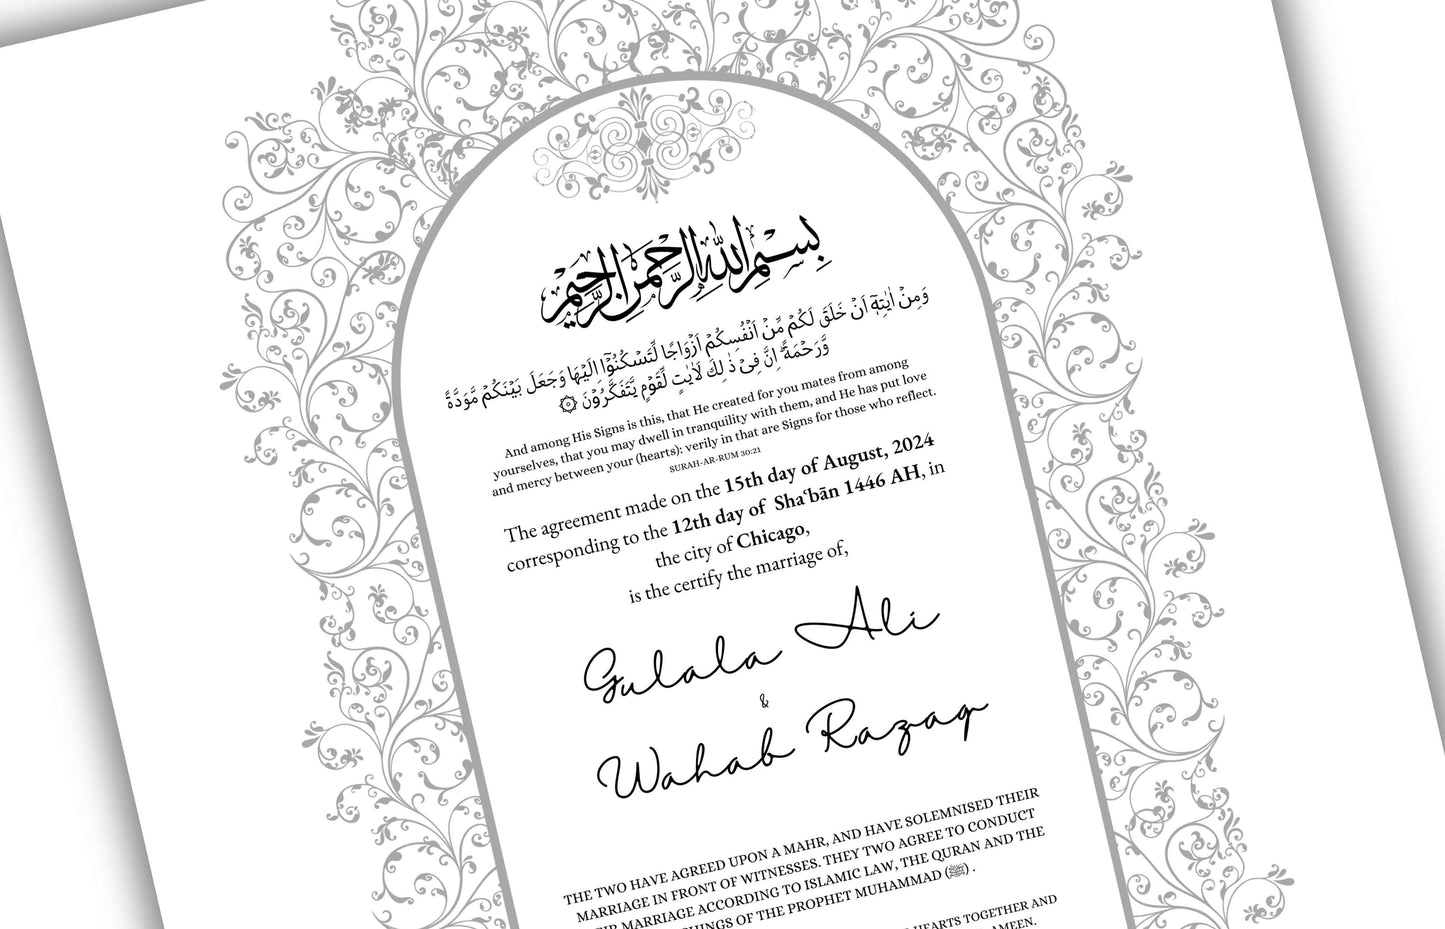 بِسْمِ اللهِ الرَّحْمٰنِ الرَّحِيْمِ
وَمِنْ اٰيٰتِهٖٓ اَنْ خَلَقَ لَكُمْ مِّنْ اَنْفُسِكُمْ اَزْوَاجًا لِّتَسْكُنُوْٓا اِلَيْهَا وَجَعَلَ بَيْنَكُمْ مَّوَدَّةً
وَّرَحْمَةً ۗاِنَّ فِيْ ذٰلِكَ لَاٰيٰتٍ لِّقَوْمٍ يَّتَفَكَّرُوْنَ ۞
And among His Signs is this, that He created for you mates from among
yourselves, that you may dwell in tranquility with them, and He has put love
and mercy between your (hearts): verily in that are Signs for those who reflect.
SURAH-AR-RUM 30:21
The agreement made on the 15th day of August, 2024
corresponding to the 12th day of Shaʿbān 1446 AH, in
the city of Chicago,
is the certify the marriage of,
Gulala Ali
&
Wahab Razaq
THE TWO HAVE AGREED UPON A MAHR, AND HAVE SOLEMNISED THEIR
MARRIAGE IN FRONT OF WITNESSES. THEY TWO AGREE TO CONDUCT
MARRIAGE ACCORDING TO ISLAMIC LAW, THE QURAN AND THE
OF THE PROPHET MUHAMMAD (ﷺ) .
HEARTS TOGETHER AND
AMEEN.